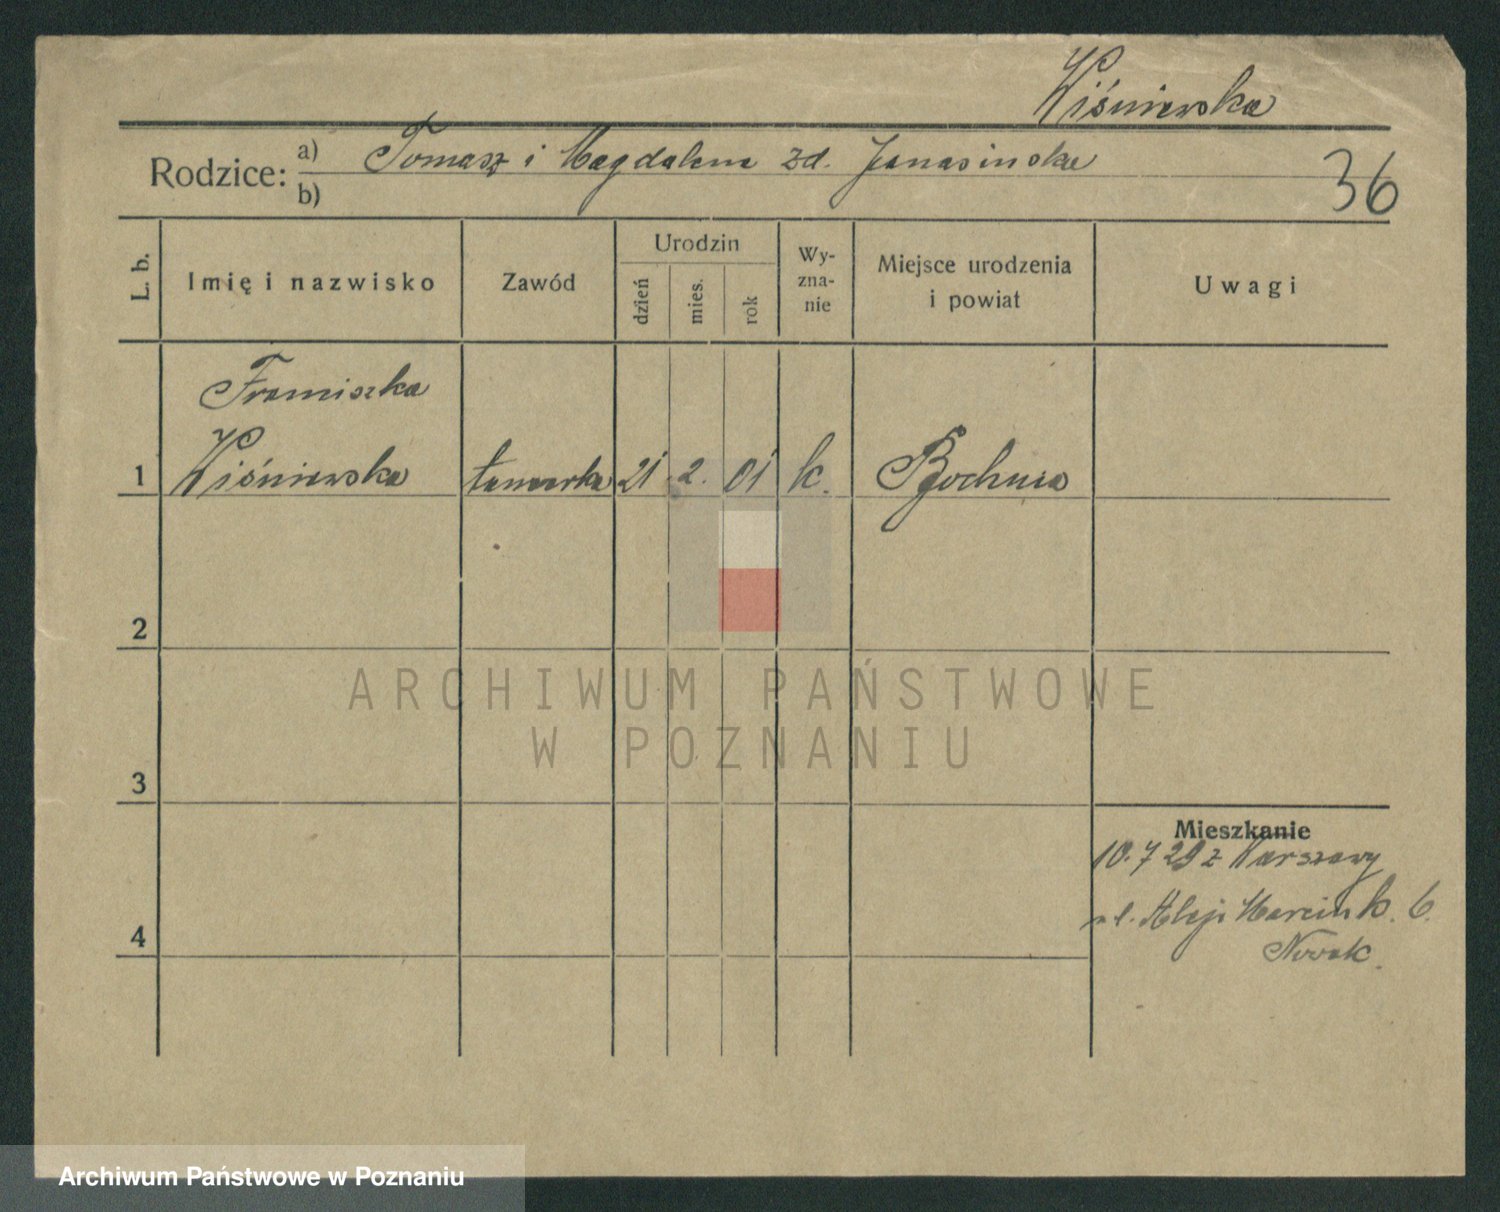 Wiśniewska
Rodzice: a) Tomasz i Magdalena zd. Janasinska
b)
36
L. b.
Imię i nazwisko
Zawód
Urodzin
dzień
mies.
rok
Wy-
zna-
nie
Miejsce urodzenia
i powiat
Uwagi
Franciszka
1 Wiśniewska 21 2. 01 k. Bochum
2
3
4
Mieszkanie
10.7 29 z Warszawy
ul. Aleje Marcink. 6.
Nowak.
ARCHIWUM PAŃSTWOWE
W POZNANIU
Archiwum Państwowe w Poznaniu